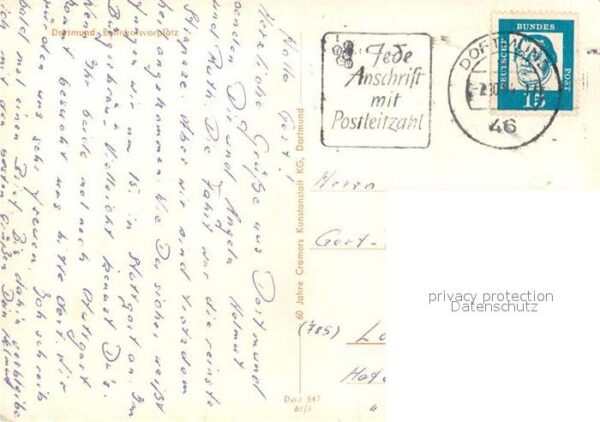 Dortmund Bahnhofsvorplatz
Hallo Gert!
Herzliche Grüße aus Dortmund
senden Dir und Angela Helmut
und Ruth. Die Fahrt war die reinste
Strapaze. Aber wir sind trotzdem
angekommen. Wie Du sicher weißt
fangen wir am 15. in Stuttgart an. Im
Vielleicht kennst Du's.
Ihr beide mal nach Stuttgart
besucht uns bitte dort. Wir
würden uns sehr freuen. Schreib
bald mal einen Brief. Bis dahin
60 Jahre Cramers Kunstanstalt KG, Dortmund
Dort 547
61/3
Jede
Anschrift
mit
Postleitzahl
DORTMUND
46
DEUTSCHE
BUNDES
POST
15
Herrn
Gert-
(785) Lö
Hof
privacy protection
Datenschutz